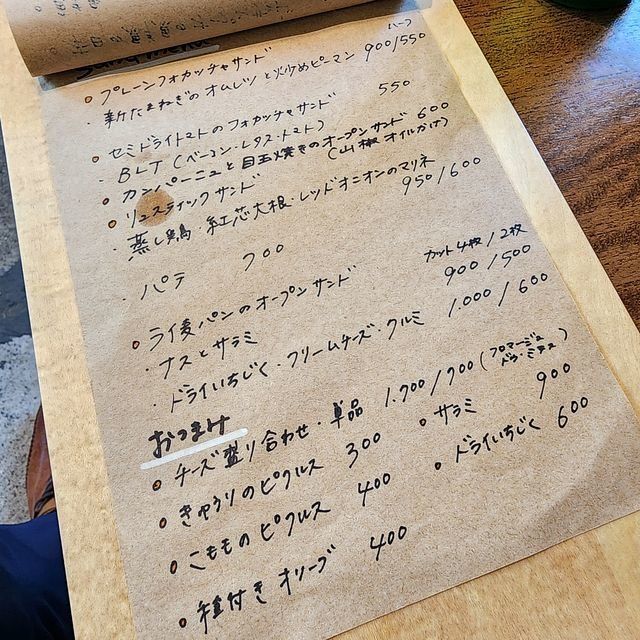 Sand menu
ハーフ
プレーンフォカッチャサンド
・新たまねぎのオムレツと炒めピーマン 900/550
セミドライトマトのフォカッチャサンド
・BLT（ベーコン・レタス・トマト） 550
カンパーニュと目玉焼きのオープンサンド 600
（山椒オイルがけ）
リュスティックサンド
・蒸し鶏・紅芯大根・レッドオニオンのマリネ 950/600
・パテ 700
カット4枚/2枚
ライ麦パンのオープンサンド
・ナスとサラミ 900/500
・ドライいちじく・クリームチーズ・クルミ 1.000/600
おつまみ
チーズ盛り合わせ・単品 1.700/700（フロマージュ ドゥ・ミチュ）
きゅうりのピクルス 300 サラミ 900
こもものピクルス 400 ドライいちじく 600
種付きオリーブ 400